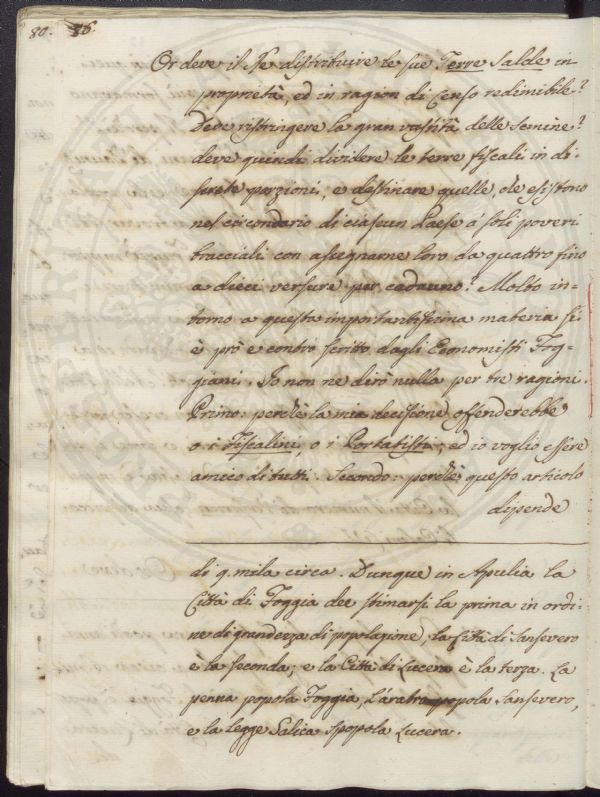 80. 76.
Or deve il Re distribuire le sue Terre Salde in
proprietà, ed in ragion di Censo redimibile?
Deve ristringere la gran vastità delle semine?
deve quindi dividere le terre fiscali in di-
screte porzioni, e destinare quelle, che esistono
nel circondario di ciascun Paese á soli poveri
bracciali con assegnarne loro da quattro fino
a dieci versure per cadauno? Molto in-
torno a questa importantissima materia si
è prò e contro scritto dagli Economisti Fog-
giani. Io non ne dirò nulla per tre ragioni.
Primo: perchè la mia decisione offenderebbe
o i Fiscalini, o i Portatisti, ed io voglio essere
amico di tutti. Secondo: perchè questo articolo
dipende
di 9. mila circa. Dunque in Apulia la
Città di Foggia dee stimarsi la prima in ordi-
ne di grandezza di popolazione, la Città di Sansevero
è la seconda, e la Città di Lucera è la terza. La
penna popola Foggia, L'aratro popola Sansevero,
e la legge Salica spopola Lucera.